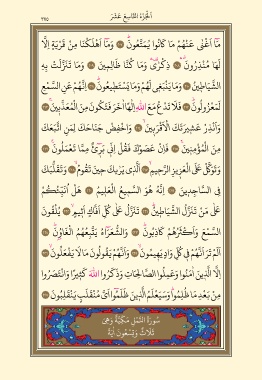 اَلْجُزْءُ التَّاسِعَ عَشَرَ
٣٧٥
مَٓا اَغْنٰى عَنْهُمْ مَا كَانُوا يُمَتَّعُونَ وَمَٓا اَهْلَكْنَا مِنْ قَرْيَةٍ اِلَّا
لَهَا مُنْذِرُونَ ذِكْرٰى وَمَا كُنَّا ظَالِمٖينَ وَمَا تَنَزَّلَتْ بِهِ
الشَّيَاطٖينُ وَمَا يَنْبَغٖي لَهُمْ وَمَا يَسْتَطٖيعُونَ اِنَّهُمْ عَنِ السَّمْعِ
لَمَعْزُولُونَ فَلَا تَدْعُ مَعَ اللّٰهِ اِلٰهًا اٰخَرَ فَتَكُونَ مِنَ الْمُعَذَّبٖينَ
وَاَنْذِرْ عَشٖيرَتَكَ الْاَقْرَبٖينَ وَاخْفِضْ جَنَاحَكَ لِمَنِ اتَّبَعَكَ
مِنَ الْمُؤْمِنٖينَ فَاِنْ عَصَوْكَ فَقُلْ اِنّٖي بَرٖٓيءٌ مِمَّا تَعْمَلُونَ
وَتَوَكَّلْ عَلَى الْعَزٖيزِ الرَّحٖيمِ اَلَّذٖي يَرٰيكَ حٖينَ تَقُومُ وَتَقَلُّبَكَ
فِي السَّاجِدٖينَ اِنَّهُ هُوَ السَّمٖيعُ الْعَلٖيمُ هَلْ اُنَبِّئُكُمْ
عَلٰى مَنْ تَنَزَّلُ الشَّيَاطٖينُ تَنَزَّلُ عَلٰى كُلِّ اَفَّاكٍ اَثٖيمٍ يُلْقُونَ
السَّمْعَ وَاَكْثَرُهُمْ كَاذِبُونَ وَالشُّعَرَٓاءُ يَتَّبِعُهُمُ الْغَاوُنَ
اَلَمْ تَرَ اَنَّهُمْ فٖي كُلِّ وَادٍ يَهٖيمُونَ وَاَنَّهُمْ يَقُولُونَ مَا لَا يَفْعَلُونَ
اِلَّا الَّذٖينَ اٰمَنُوا وَعَمِلُوا الصَّالِحَاتِ وَذَكَرُوا اللّٰهَ كَثٖيرًا وَانْتَصَرُوا
مِنْ بَعْدِ مَا ظُلِمُوا وَسَيَعْلَمُ الَّذٖينَ ظَلَمُٓوا اَيَّ مُنْقَلَبٍ يَنْقَلِبُونَ
سُورَةُ النَّمْلِ مَكِّيَّةٌ وَهِيَ
ثَلَاثٌ وَتِسْعُونَ اٰيَةً